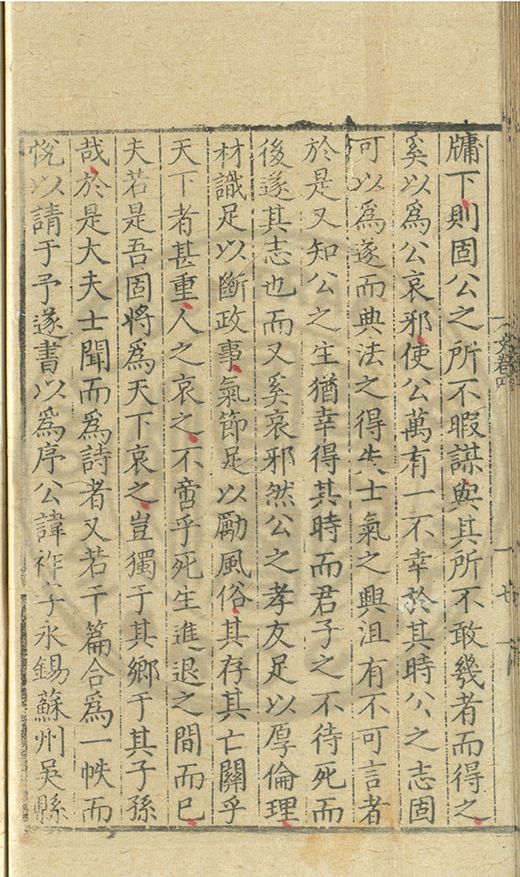 牖下則固公之所不暇謀與其所不敢幾者而得之
奚以爲公哀邪使公萬有一不幸於其時公之志固
可以爲遂而典法之得失士氣之興沮有不可言者
於是又知公之生猶幸得其時而君子之不待死而
後遂其志也而又奚哀邪然公之孝友足以厚倫理
材識足以斷政事氣節足以勵風俗其存其亡關乎
天下者甚重人之哀之不啻乎死生進退之間而已
夫若是吾固將爲天下哀之豈獨于其鄉于其子孫
哉於是大夫士聞而爲詩者又若干篇合爲一帙而
侻以請于予遂書以爲序公諱祚字永錫蘇州吳縣